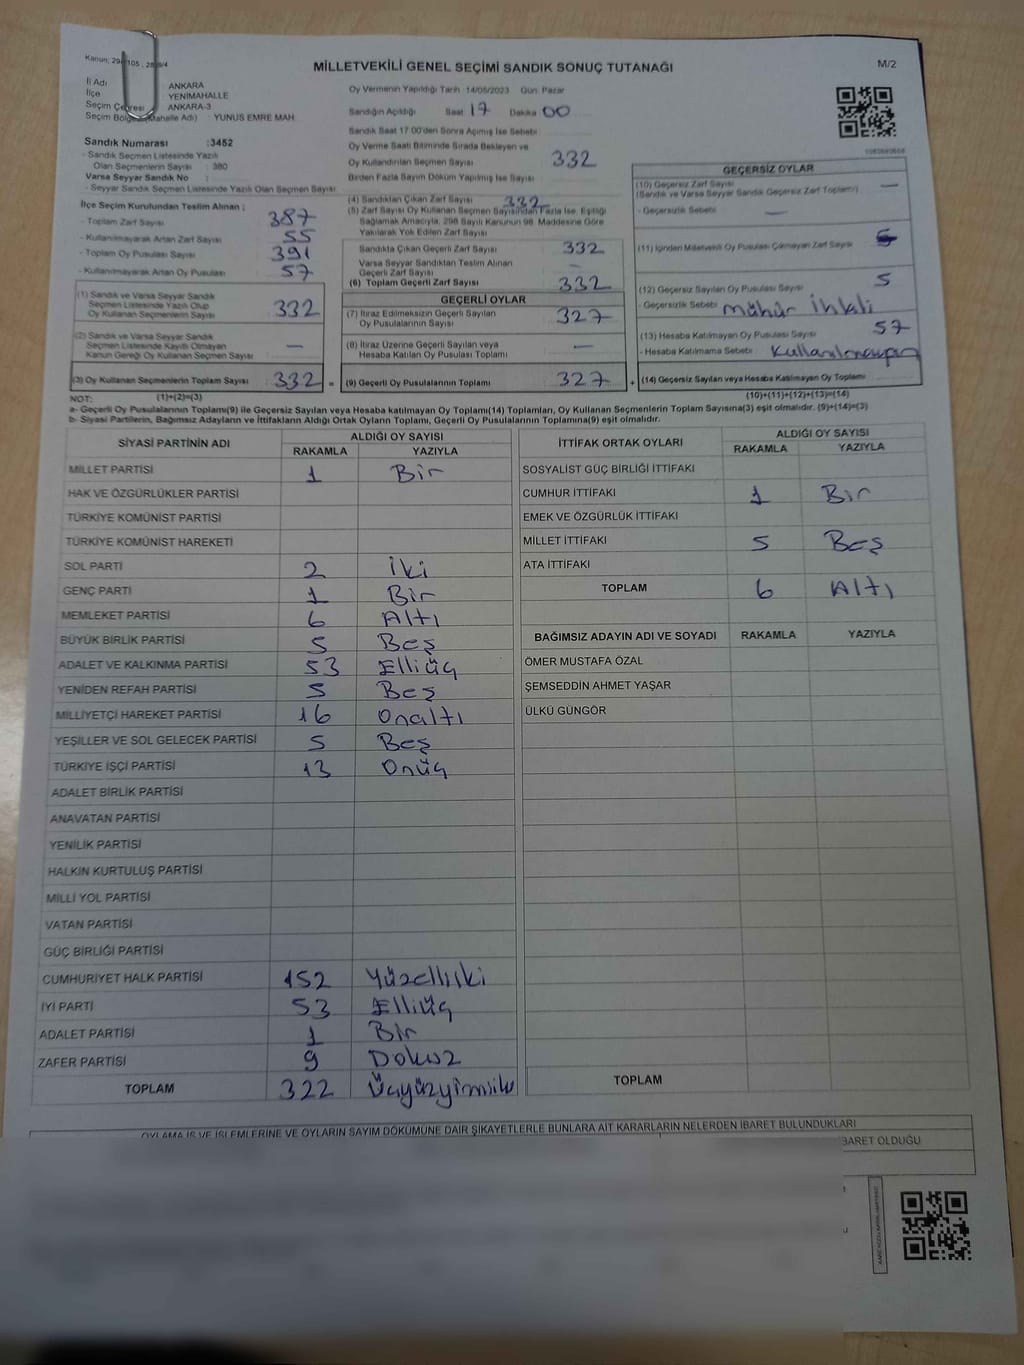 MİLLETVEKİLİ GENEL SEÇİMİ SANDIK SONUÇ TUTANAĞI
M/2
İl Adı
ANKARA
İlçe
YENİMAHALLE
Seçim Çevresi
ANKARA-3
Seçim Bölgesi(Mahalle Adı) YUNUS EMRE MAH.
Sandık Numarası :3452
- Sandık Seçmen Listesinde Yazılı
Olan Seçmenlerin Sayısı : 380
Varsa Seyyar Sandık No :
- Seyyar Sandık Seçmen Listesinde Yazılı Olan Seçmen Sayısı :
İlçe Seçim Kurulundan Teslim Alınan ;
- Toplam Zarf Sayısı : 387
- Kullanılmayarak Artan Zarf Sayısı : 55
- Toplam Oy Pusulası Sayısı : 391
- Kullanılmayarak Artan Oy Pusulası : 57
(1) Sandık ve Varsa Seyyar Sandık
Seçmen Listesinde Yazılı Olup
Oy Kullanan Seçmenlerin Sayısı : 332
(2) Sandık ve Varsa Seyyar Sandık
Seçmen Listesinde Kayıtlı Olmayan
Kanun Gereği Oy Kullanan Seçmen Sayısı : —
(3) Oy Kullanan Seçmenlerin Toplam Sayısı : 332 =
Oy Vermenin Yapıldığı Tarih : 14/05/2023 Gün: Pazar
Sandığın Açıldığı Saat : 17 Dakika : 00
Sandık Saat 17:00'den Sonra Açılmış İse Sebebi :
Oy Verme Saati Bitiminde Sırada Bekleyen ve
Oy Kullandırılan Seçmen Sayısı : 332
Birden Fazla Sayım Döküm Yapılmış İse Sayısı :
(4) Sandıktan Çıkan Zarf Sayısı : 332
(5) Zarf Sayısı Oy Kullanan Seçmen Sayısından Fazla İse, Eşitliği
Sağlamak Amacıyla, 298 Sayılı Kanunun 98. Maddesine Göre
Yakılarak Yok Edilen Zarf Sayısı :
Sandıkta Çıkan Geçerli Zarf Sayısı : 332
Varsa Seyyar Sandıktan Teslim Alınan
Geçerli Zarf Sayısı : —
(6) Toplam Geçerli Zarf Sayısı : 332
GEÇERLİ OYLAR
(7) İtiraz Edilmeksizin Geçerli Sayılan
Oy Pusulalarının Sayısı : 327
(8) İtiraz Üzerine Geçerli Sayılan veya
Hesaba Katılan Oy Pusulası Toplamı : —
(9) Geçerli Oy Pusulalarının Toplamı : 327 +
GEÇERSİZ OYLAR
(10) Geçersiz Zarf Sayısı : —
(Sandık ve Varsa Seyyar Sandık Geçersiz Zarf Toplamı)
- Geçersizlik Sebebi : —
(11) İçinden Milletvekili Oy Pusulası Çıkmayan Zarf Sayısı :
(12) Geçersiz Sayılan Oy Pusulası Sayısı : 5
- Geçersizlik Sebebi : mühür İhlali
(13) Hesaba Katılmayan Oy Pusulası Sayısı : 57
- Hesaba Katılmama Sebebi : Kullanılmayan
(14) Geçersiz Sayılan veya Hesaba Katılmayan Oy Toplamı :
NOT: (1)+(2)=(3)
(10)+(11)+(12)+(13)=(14)
a- Geçerli Oy Pusulalarının Toplamı(9) ile Geçersiz Sayılan veya Hesaba katılmayan Oy Toplamı(14) Toplamları, Oy Kullanan Seçmenlerin Toplam Sayısına(3) eşit olmalıdır. (9)+(14)=(3)
b- Siyasi Partilerin, Bağımsız Adayların ve İttifakların Aldığı Ortak Oyların Toplamı, Geçerli Oy Pusulalarının Toplamına(9) eşit olmalıdır.
SİYASİ PARTİNİN ADI
ALDIĞI OY SAYISI
RAKAMLA YAZIYLA
MİLLET PARTİSİ 1 Bir
HAK VE ÖZGÜRLÜKLER PARTİSİ
TÜRKİYE KOMÜNİST PARTİSİ
TÜRKİYE KOMÜNİST HAREKETİ
SOL PARTİ 2 İki
GENÇ PARTİ 1 Bir
MEMLEKET PARTİSİ 6 Altı
BÜYÜK BİRLİK PARTİSİ 5 Beş
ADALET VE KALKINMA PARTİSİ 53 Elliüç
YENİDEN REFAH PARTİSİ 5 Beş
MİLLİYETÇİ HAREKET PARTİSİ 16 Onaltı
YEŞİLLER VE SOL GELECEK PARTİSİ 5 Beş
TÜRKİYE İŞÇİ PARTİSİ 13 Onüç
ADALET BİRLİK PARTİSİ
ANAVATAN PARTİSİ
YENİLİK PARTİSİ
HALKIN KURTULUŞ PARTİSİ
MİLLİ YOL PARTİSİ
VATAN PARTİSİ
GÜÇ BİRLİĞİ PARTİSİ
CUMHURİYET HALK PARTİSİ 152 Yüzelliiki
İYİ PARTİ 53 Elliüç
ADALET PARTİSİ 1 Bir
ZAFER PARTİSİ 9 Dokuz
TOPLAM 322 Üçyüzyirmiiki
İTTİFAK ORTAK OYLARI
ALDIĞI OY SAYISI
RAKAMLA YAZIYLA
SOSYALİST GÜÇ BİRLİĞİ İTTİFAKI
CUMHUR İTTİFAKI 1 Bir
EMEK VE ÖZGÜRLÜK İTTİFAKI
MİLLET İTTİFAKI 5 Beş
ATA İTTİFAKI
TOPLAM 6 Altı
BAĞIMSIZ ADAYIN ADI VE SOYADI RAKAMLA YAZIYLA
ÖMER MUSTAFA ÖZAL
ŞEMSEDDİN AHMET YAŞAR
ÜLKÜ GÜNGÖR
TOPLAM
OYLAMA İŞ VE İŞLEMLERİNE VE OYLARIN SAYIM DÖKÜMÜNE DAİR ŞİKAYETLERLE BUNLARA AİT KARARLARIN NELERDEN İBARET BULUNDUKLARI
BARET OLDUĞU